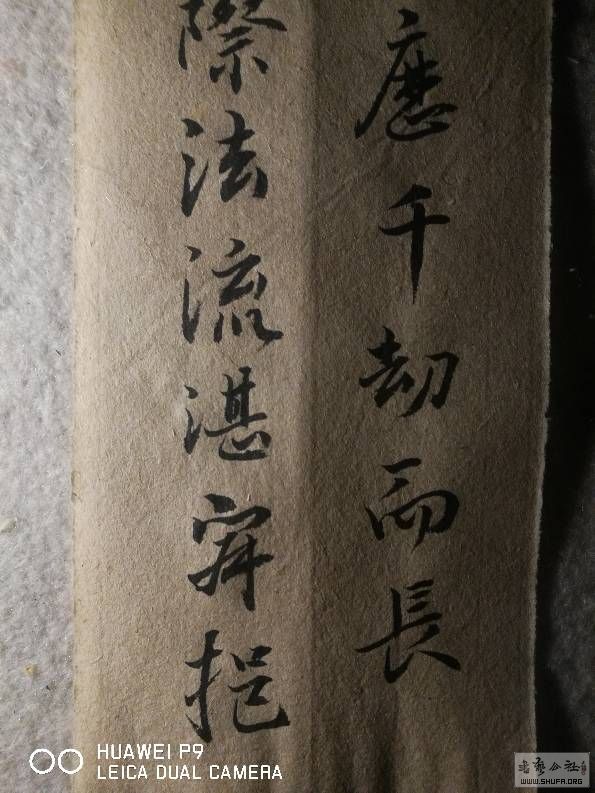 歷千劫而長
際法流湛寂挹
HUAWEI P9
LEICA DUAL CAMERA
WWW.SHUFA.ORG